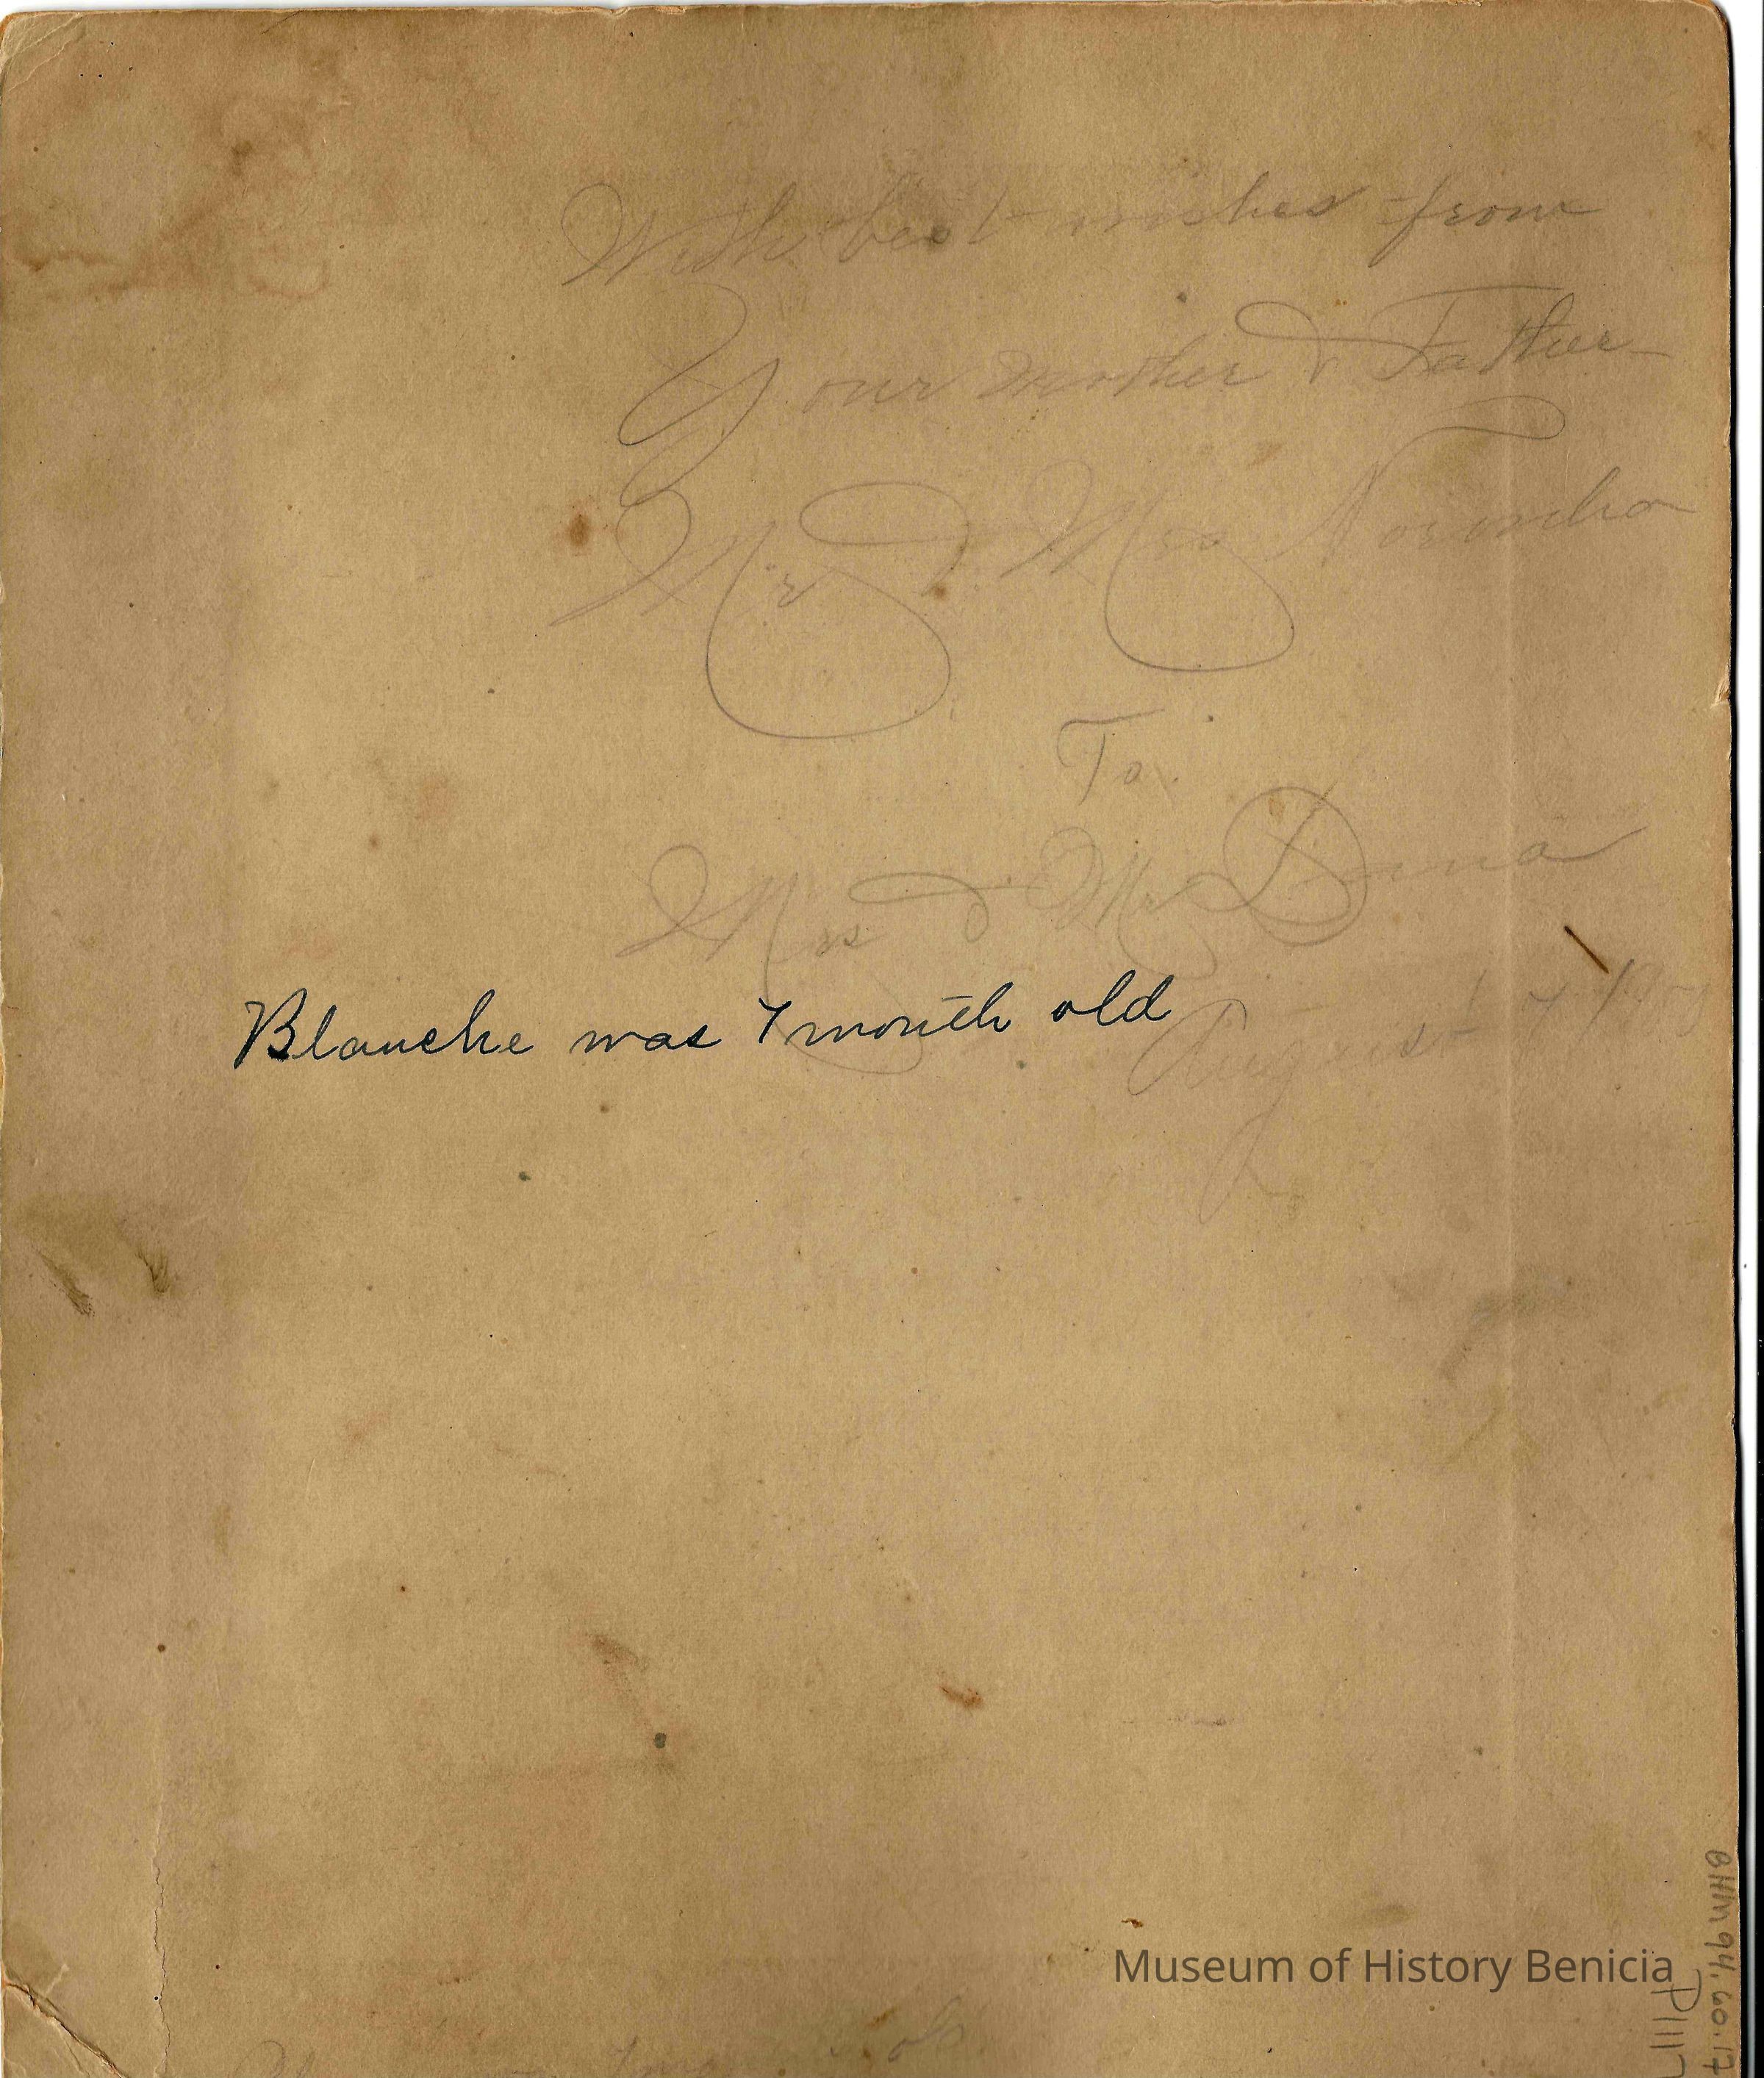 With best wishes from
Your mother & Father
Mr & Mrs
To
Mrs & Mr
August
Blanche was 7 month old
Museum of History Benicia
BHM 94.60.17